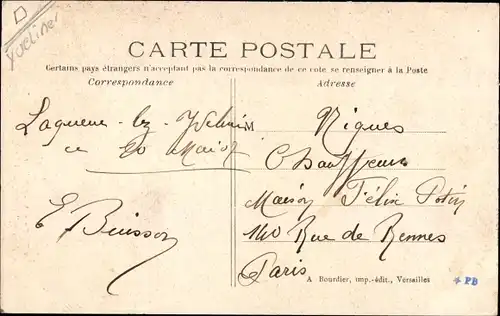 Yvelines
CARTE POSTALE
Certains pays étrangers n'acceptant pas la correspondance de ce côté se renseigner à la Poste
Correspondance
Adresse
Laqueue-lez-Yvelines
ce 20 Mai 07
E Buisson
M Nigues
Chauffeur
Maison Félix Potin
140 Rue de Rennes
Paris
A Bourdier, imp.-édit., Versailles
* PB